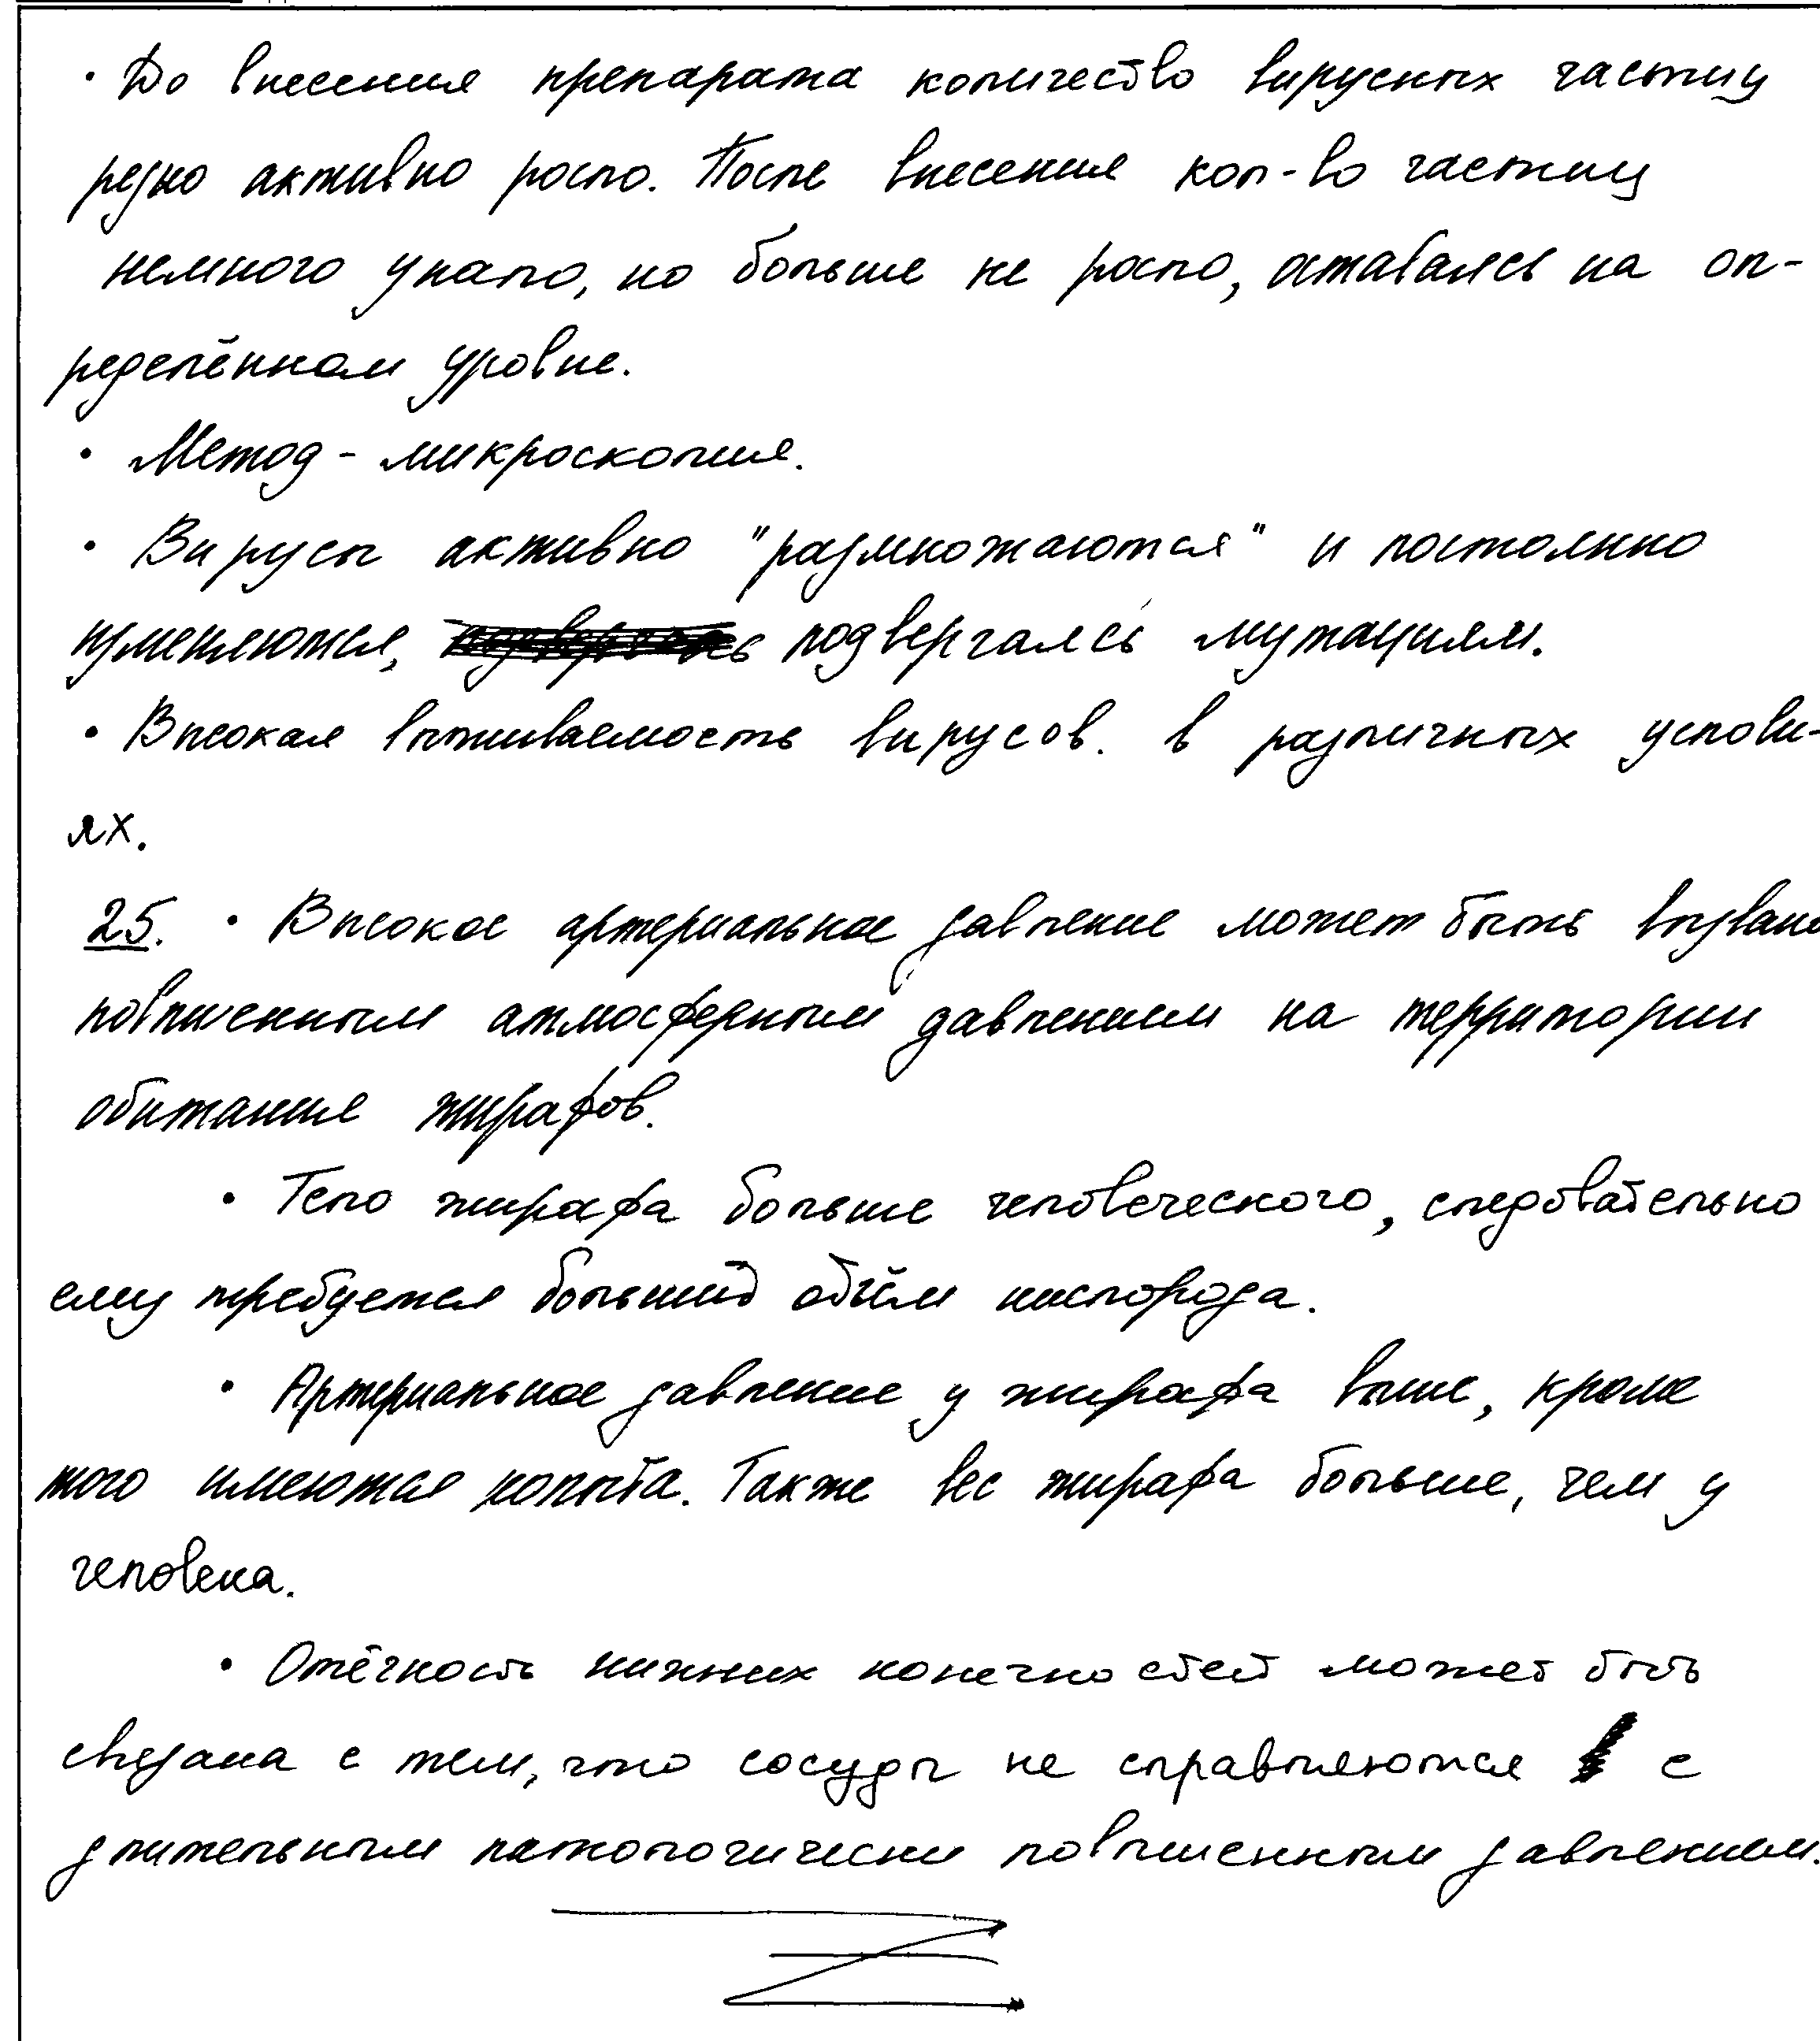 · До внесения препарата количество вирусных частиц
резко активно росло. После внесения кол-во частиц
немного упало, но больше не росло, оставаясь на оп-
ределённом уровне.
· Метод - микроскопия.
· Вирусы активно "размножаются" и постоянно
изменяются, подвергаясь мутациям.
· Высокая выживаемость вирусов. в различных услови-
ях.
25. · Высокое артериальное давление может быть вызвано
повышенным атмосферным давлением на территории
обитания жирафов.
· Тело жирафа больше человеческого, следовательно
ему требуется больший объём кислорода.
· Артериальное давление у жирафа выше, кроме
того имеются копыта. Также вес жирафа больше, чем у
человека.
· Отёчность нижних конечностей может быть
связана с тем, что сосуды не справляются с
длительным патологически повышенным давлением.